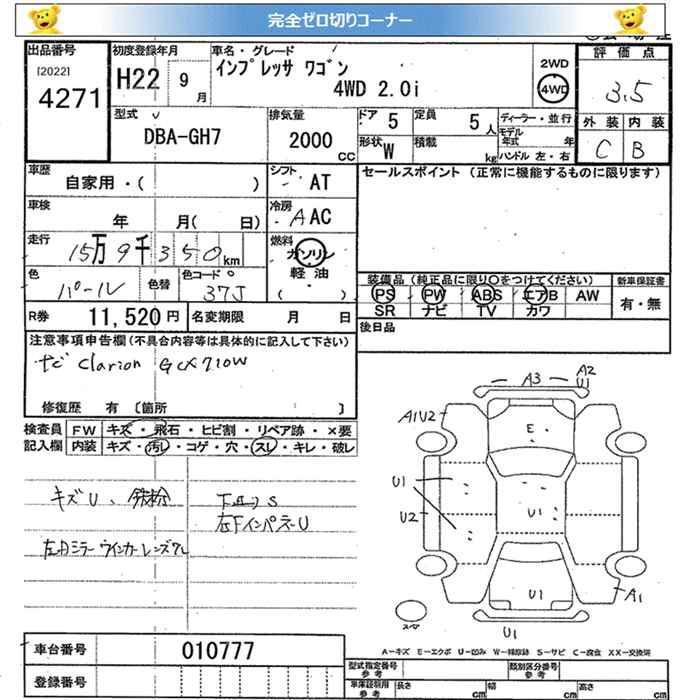 完全ゼロ切りコーナー
出品番号
[2022]
4271
初度登録年月
H22 9月
車名・グレード
インプレッサ ワゴン
4WD 2.0i
2WD
4WD
評価点
3.5
外装 内装
C B
型式
DBA-GH7
排気量
2000 CC
ドア 5
定員 5人
形状 W
積載 kg
ディーラー・並行
モデル年式 年
ハンドル 左・右
車歴
自家用・( )
シフト
AT
セールスポイント (正常に機能するものに限ります)
車検
年 月( 日)
冷房
AAC
走行
15万9千350km
燃料
ガソリン
軽油
( )
色
パール
色替
色コード
37J
装備品 (純正品に限り○をつけてください)
新車保証書
PS PW ABS エアB AW
有・無
SR ナビ TV カワ
R券 11,520円
名変期限 月 日
後日品
注意事項申告欄(不具合内容等は具体的に記入して下さい)
ナビ Clarion GCX710W
修復歴 有 [箇所 ]
検査員 FW キズ・飛石・ヒビ割・リペア跡・×要
記入欄 内装 キズ・汚レ・コゲ・穴・スレ・キレ・破レ
キズU、鉄粉
下回りS
左下インパネU
左ドアミラーウインカーレンズワレ
A3
A2
U1
A1U2
E
U1
U1
U2
U1
A1
スペア
U1
A-キズ E-エクボ U-凹み W-補修跡 S-サビ C-腐食 XX-交換済
車台番号 010777
登録番号
型式指定番号
参考
類別区分番号
参考
車庫証明用
参考
長さ cm
幅 cm
高さ cm